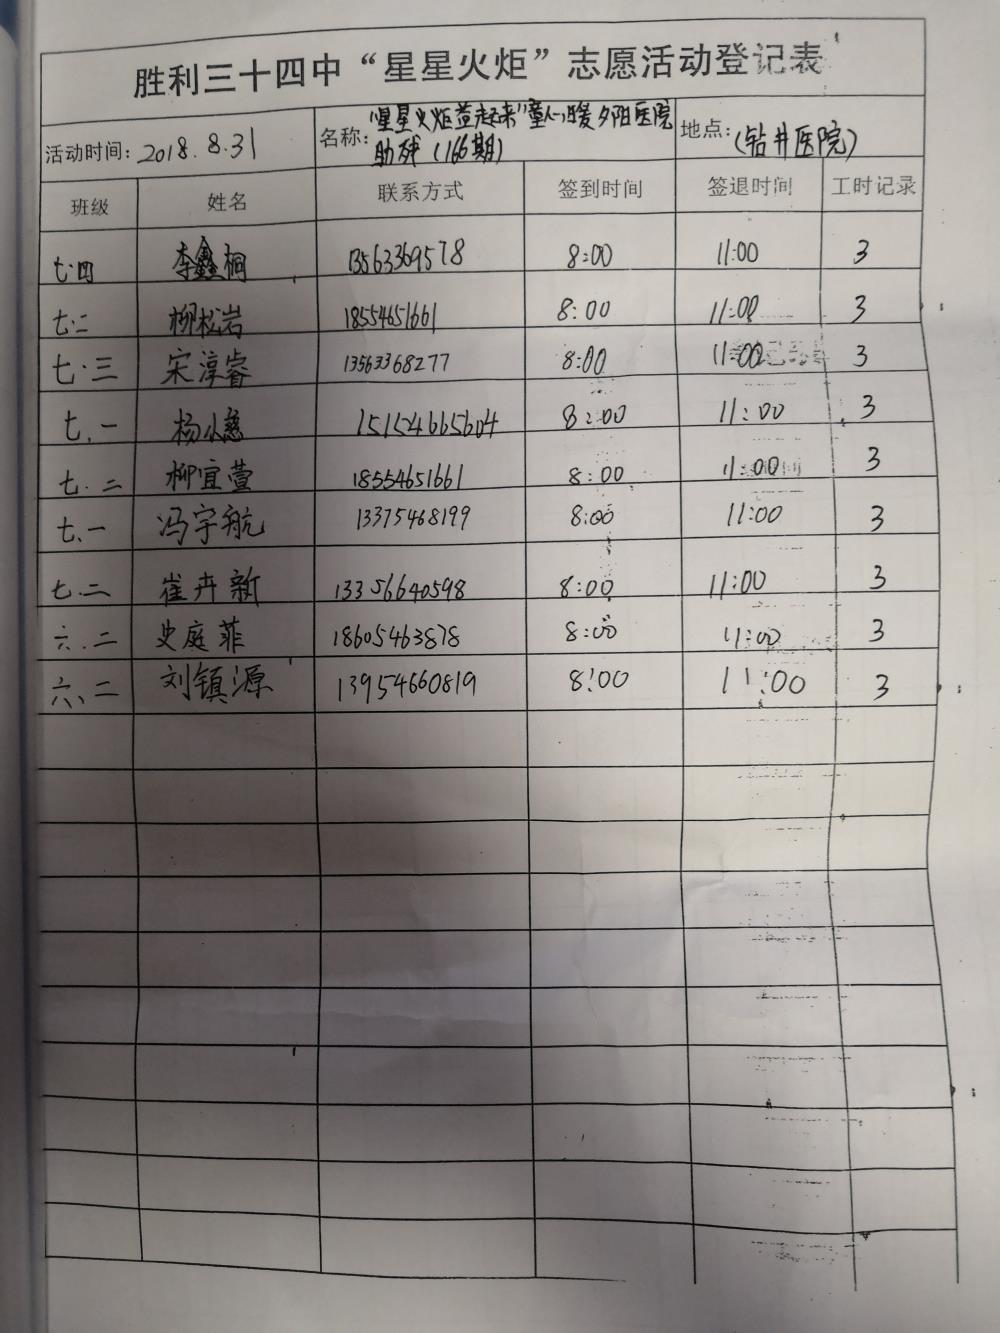 胜利三十四中“星星火炬”志愿活动登记表
活动时间: 2018.8.31 名称: "星星火炬益起来"童心暖夕阳医院助残(166期) 地点: (钻井医院)
班级 姓名 联系方式 签到时间 签退时间 工时记录
七.四 李鑫桐 13563369578 8:00 11:00 3
七.二 柳松岩 18554651661 8:00 11:00 3
七.三 宋淳睿 13563368277 8:00 11:00 3
七.一 杨小慈 8:00 11:00 3
七.二 柳宜萱 18554651661 8:00 11:00 3
七.一 冯宇航 13375468199 8:00 11:00 3
七.二 崔卉新 13356640598 8:00 11:00 3
六.二 史庭菲 18605463878 8:00 11:00 3
六、二 刘镇源 13954660819 8:00 11:00 3